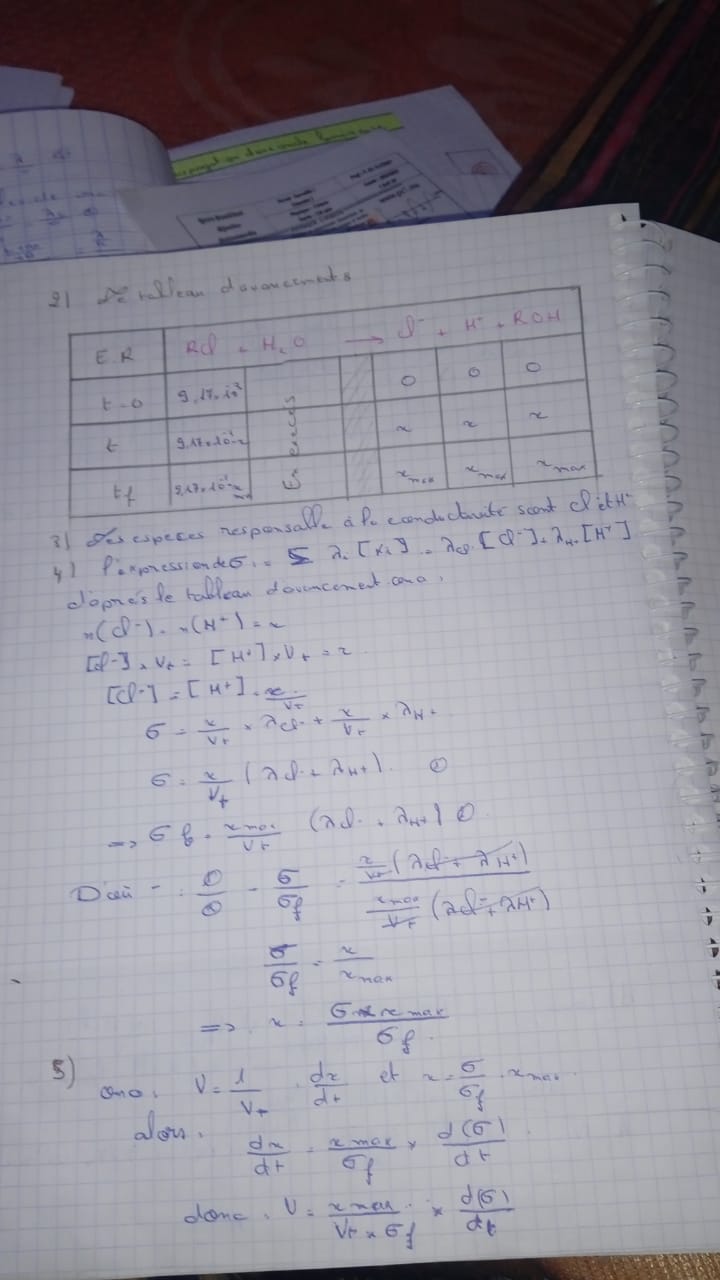 2) Le tableau d'avancements
E.R RCl + H₂O → Cl⁻ + H⁺ + ROH
t=0 9,17.10⁻³ 0 0 0
En excès
t 9,17.10⁻³-x x x x
tf 9,17.10⁻³-x x max x max x max
3) Les especes responsable à la conductivité sont Cl⁻ et H⁺
4) l'expression de σ. = Σ λᵢ [Xᵢ] = λCl⁻ [Cl⁻] + λH⁺ [H⁺]
d'après le tableau d'avancement ona,
n(Cl⁻) = n(H⁺) = x
[Cl⁻] × Vt = [H⁺] × Vt = x
[Cl⁻] = [H⁺] = x/Vt
σ = x/Vt × λCl⁻ + x/Vt × λH⁺
σ = x/Vt (λCl⁻ + λH⁺) ①
=> σf = xmax/Vt (λCl⁻ + λH⁺) ②
D'où : ①/② = σ/σf = x/Vt (λCl⁻ + λH⁺) / xmax/Vt (λCl⁻ + λH⁺)
σ/σf = x/xmax
=> x = σ × xmax/σf
5)
ona, V = 1/Vt . dx/dt et x = σ/σf . xmax
alors, dx/dt = xmax/σf × d(σ)/dt
donc, V = xmax/Vt × σf × d(σ)/dt